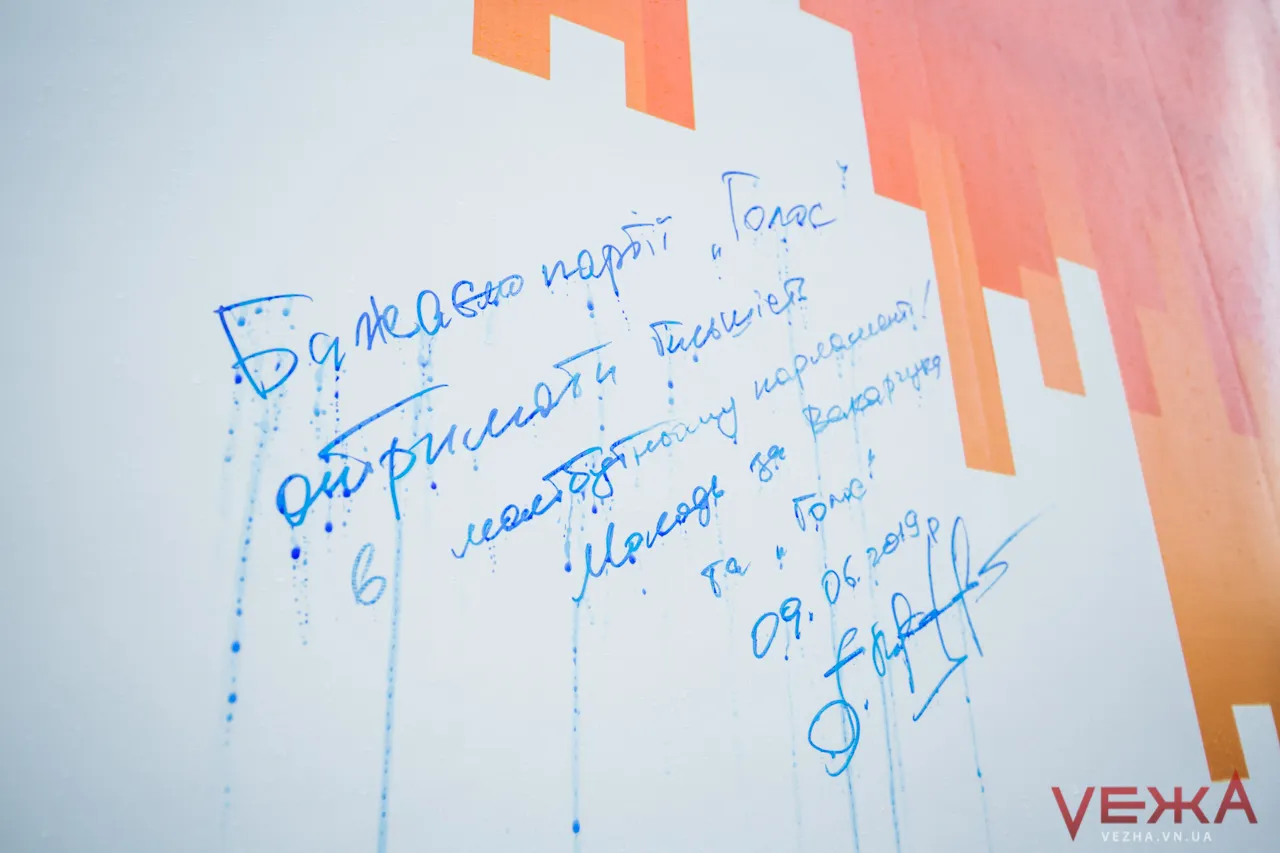 Бажаємо партії „Голос"
отримати більшість
в майбутньому парламенті!
Молодь за Вакарчука
та „Голос"
09.06.2019р
VЕЖА
VEZHA.VN.UA